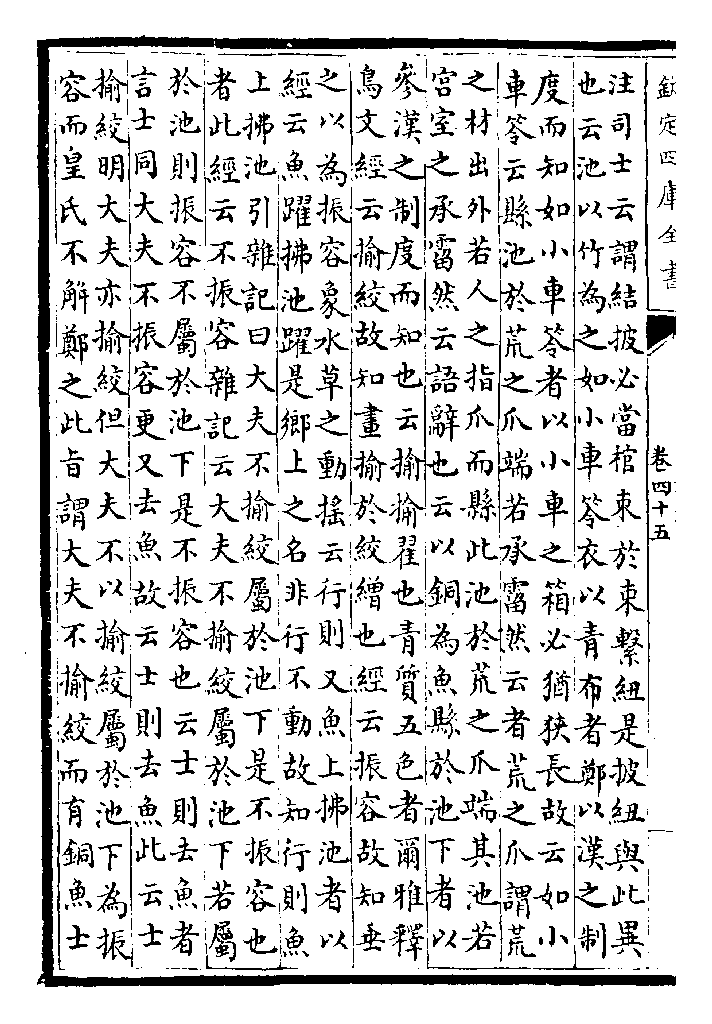 欽定四庫全書
卷四十五
注司士云謂結披必當棺束於束繫紐是披紐與此異
也云池以竹為之如小車笭衣以青布者鄭以漢之制
度而知如小車笭者以小車之箱必猶狹長故云如小
車笭云縣池於荒之爪端若承霤然云者荒之爪謂荒
之材出外若人之指爪而縣此池於荒之爪端其池若
宮室之承霤然云語辭也云以銅為魚縣於池下者以
參漢之制度而知也云揄揄翟也青質五色者爾雅釋
鳥文經云揄絞故知畫揄於絞繒也經云振容故知垂
之以為振容象水草之動搖云行則又魚上拂池者以
經云魚躍拂池躍是鄉上之名非行不動故知行則魚
上拂池引雜記曰大夫不揄絞屬於池下是不振容也
者此經云不振容雜記云大夫不揄絞屬於池下若屬
於池則振容不屬於池下是不振容也云士則去魚者
言士同大夫不振容更又去魚故云士則去魚此云士
揄絞明大夫亦揄絞但大夫不以揄絞屬於池下為振
容而皇氏不解鄭之此旨謂大夫不揄絞而有銅魚士